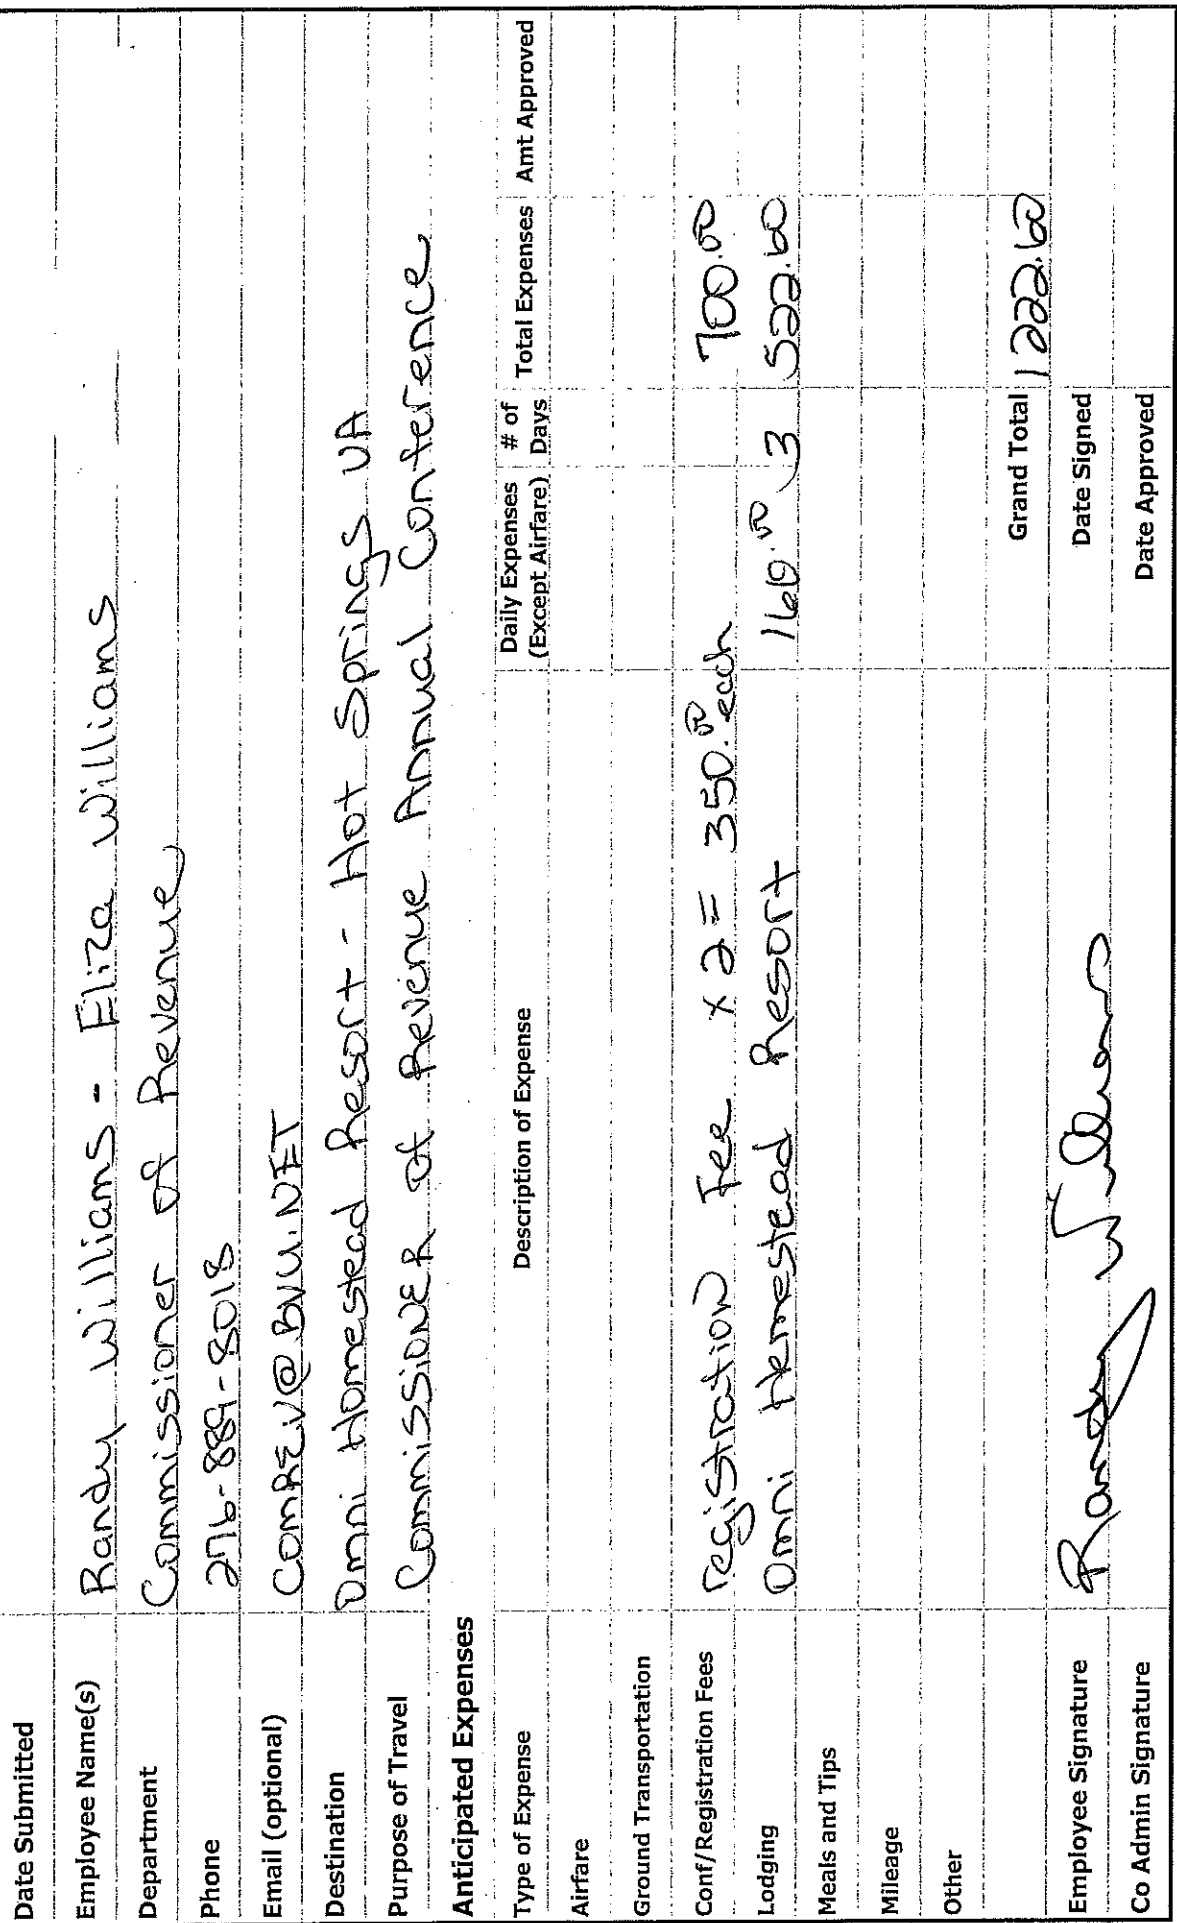 Date Submitted
Employee Name(s) Randy Williams - Eliza Williams
Department Commissioner of Revenue
Phone 276-889-8018
Email (optional) COMREV@BVU.NET
Destination Omni Homestead Resort - Hot Springs VA
Purpose of Travel Commissioner of Revenue Annual Conference
Anticipated Expenses
Type of Expense Description of Expense Daily Expenses (Except Airfare) # of Days Total Expenses Amt Approved
Airfare
Ground Transportation
Conf/Registration Fees registration Fee x 2 = 350.00 each 700.00
Lodging Omni Homestead Resort 160.00 3 522.60
Meals and Tips
Mileage
Other
Grand Total 1222.60
Employee Signature Randy Williams Date Signed
Co Admin Signature Date Approved